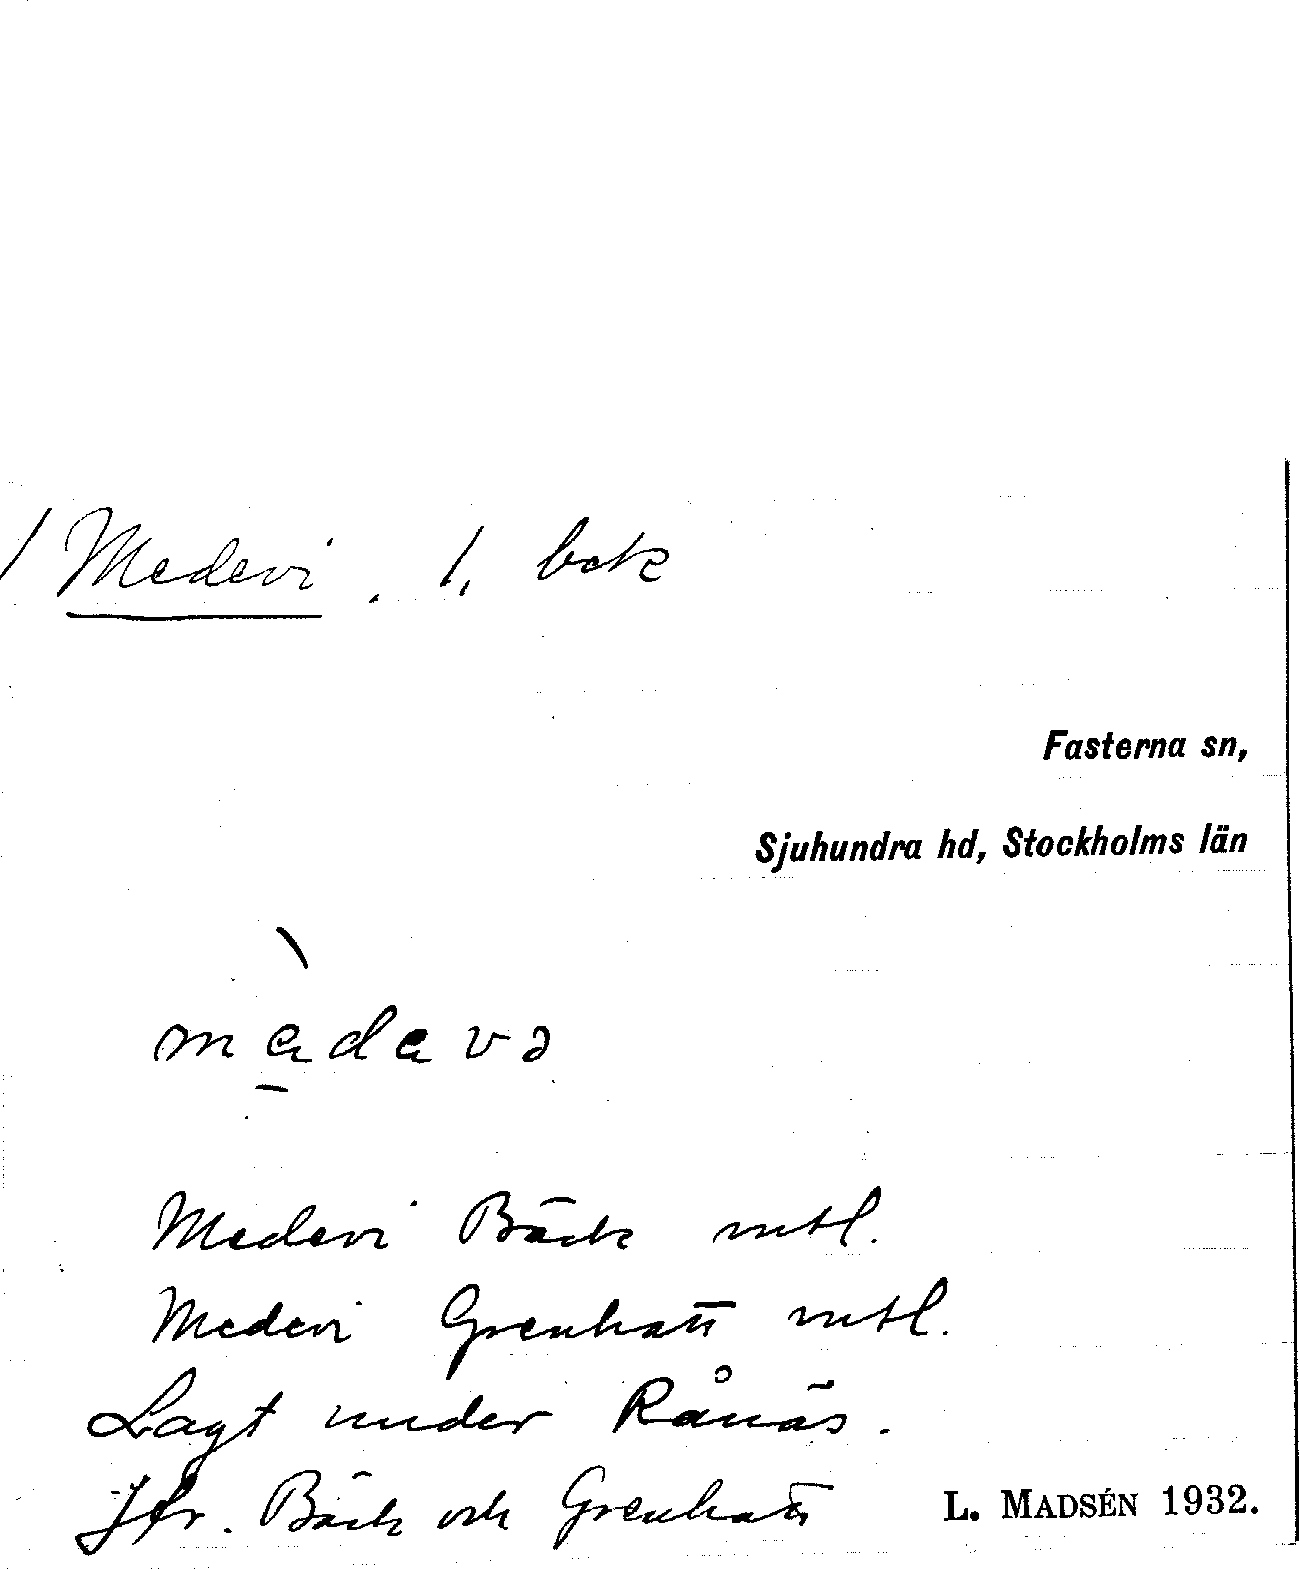 / Medevi. 1. bok
Fasterna sn,
Sjuhundra hd, Stockholms län
Medevi Bäck mtl.
Medevi Grenhatt mtl.
Lagt under Rånäs.
Jfr. Bäck och Grenhatt
L. MADSÉN 1932.